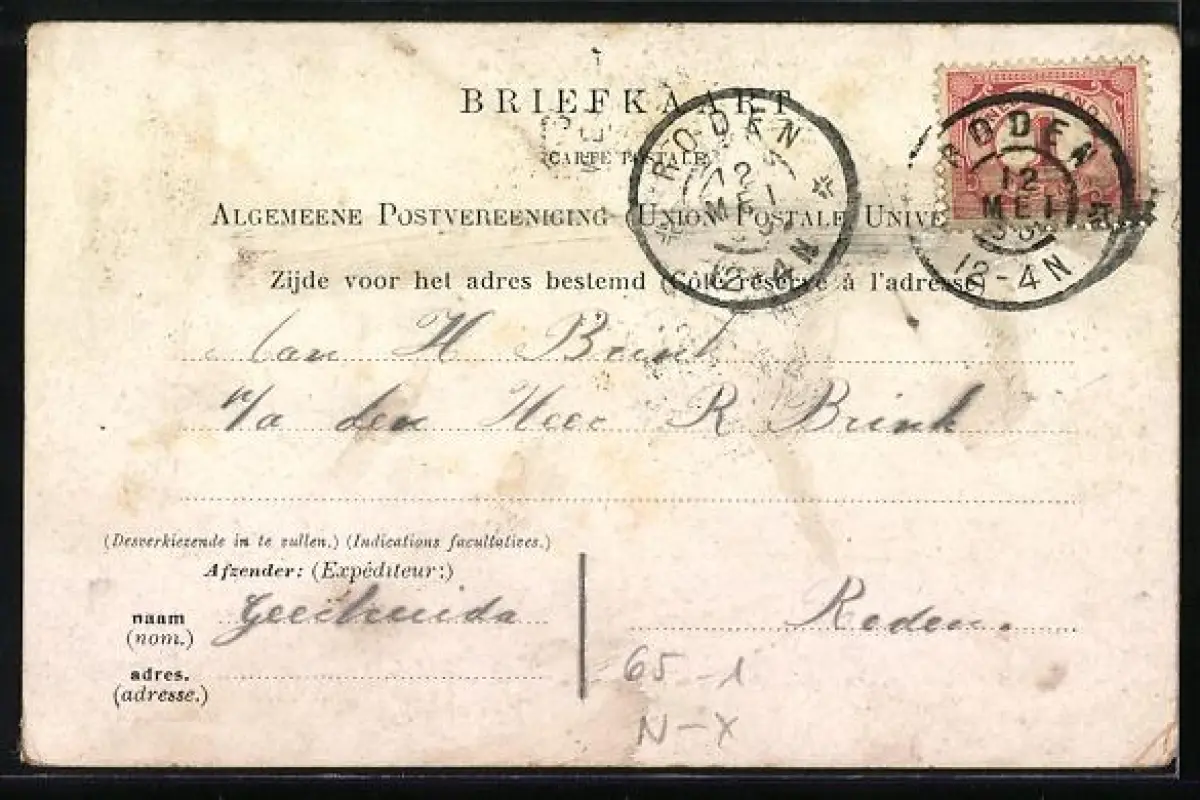 BRIEFKAART
CARTE POSTALE
ALGEMEENE POSTVEREENIGING (UNION POSTALE UNIVE
Zijde voor het adres bestemd (Côté réservé à l'adresse)
NEDERLAND
RODEN
12
MEI
12-4N
RODEN
12
MEI
12-4N
Aan H Brink
p/a den Heer R Brink
(Desverkiezende in te vullen.) (Indications facultatives.)
Afzender: (Expéditeur:)
naam Geertruida
(nom.)
Roden.
adres.
(adresse.)
65-1
N-X